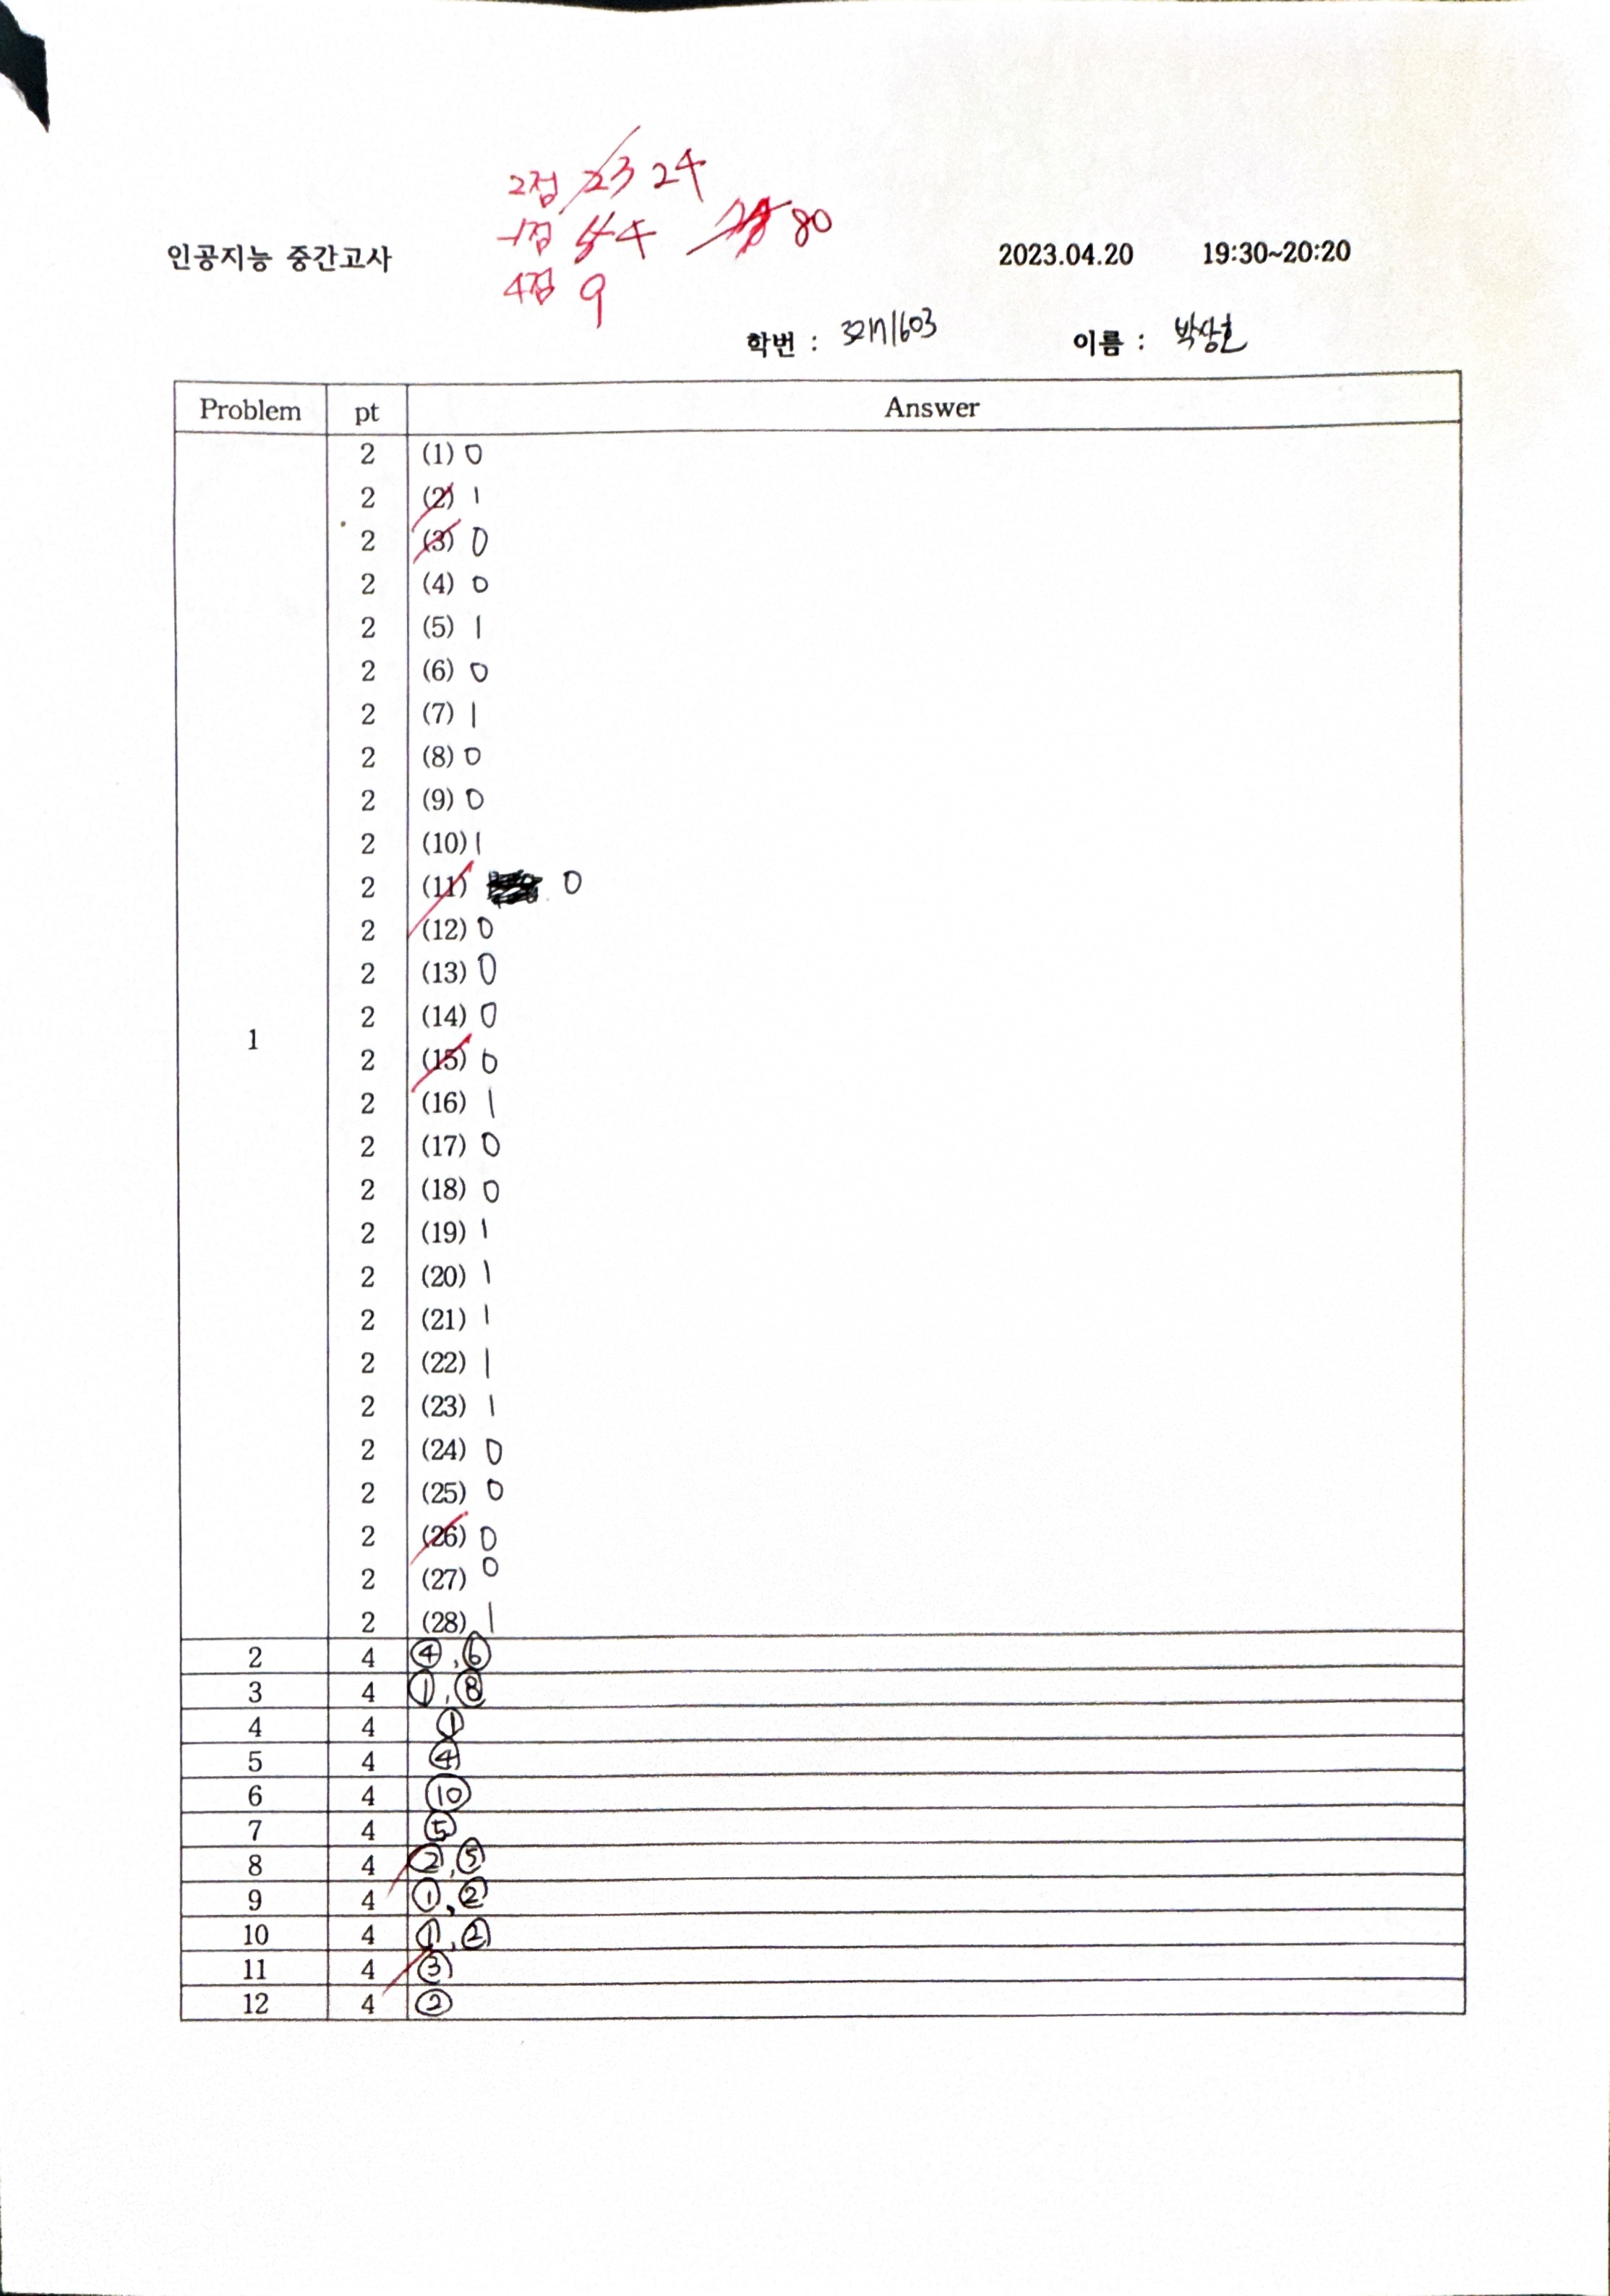 2점 23 24
-1점 5 4 80
4점 9
인공지능 중간고사 2023.04.20 19:30~20:20
학번 : 32171603 이름 : 박상호
Problem pt Answer
2 (1) 0
2 (2) 1
2 (3) 0
2 (4) 0
2 (5) 1
2 (6) 0
2 (7) 1
2 (8) 0
2 (9) 0
2 (10) 1
2 (11) 0
2 (12) 0
2 (13) 0
2 (14) 0
1
2 (15) 0
2 (16) 1
2 (17) 0
2 (18) 0
2 (19) 1
2 (20) 1
2 (21) 1
2 (22) 1
2 (23) 1
2 (24) 0
2 (25) 0
2 (26) 0
2 (27) 0
2 (28) 1
2 4 ④, ⑥
3 4 ①, ⑧
4 4 ①
5 4 ④
6 4 ⑩
7 4 ⑤
8 4 ②, ⑤
9 4 ①, ②
10 4 ①, ②
11 4 ③
12 4 ②